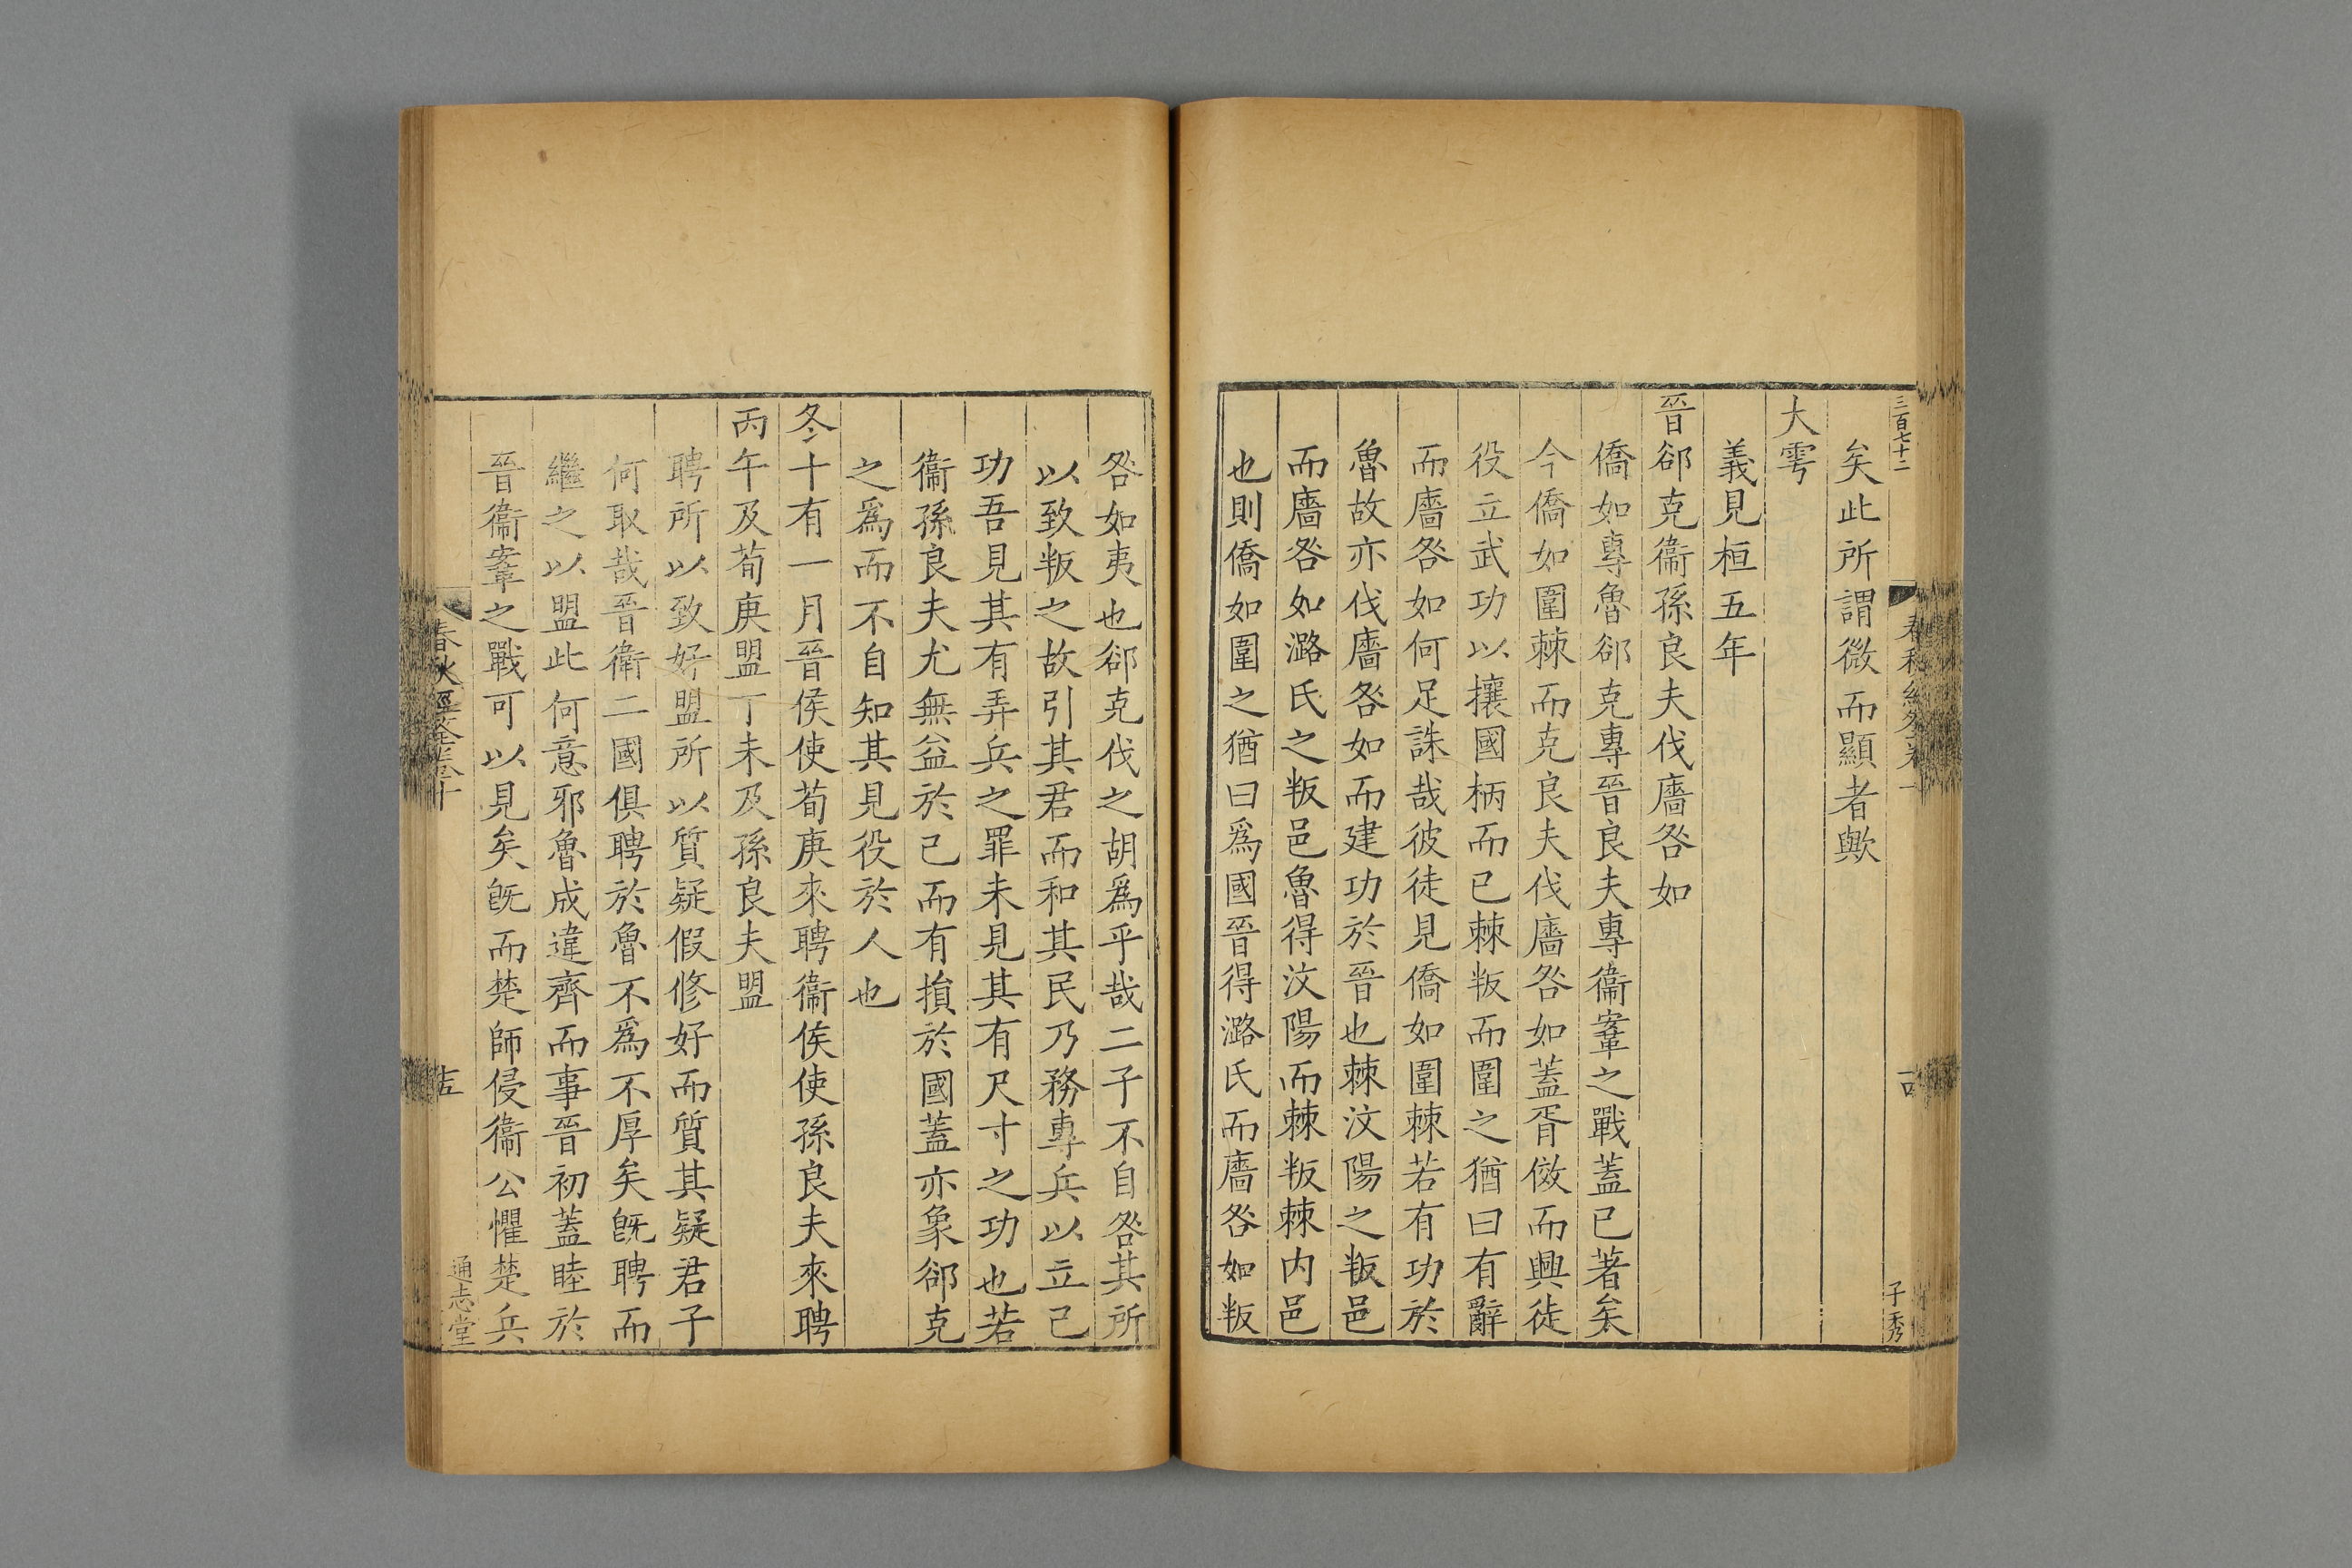 三百七十二
子秀
矣此所謂微而顯者歟
大雩
義見桓五年
晉郤克衞孫良夫伐廧咎如
僑如專魯郤克專晉良夫專衞鞌之戰蓋已著矣
今僑如圍棘而克良夫伐廧咎如蓋胥傚而興徒
役立武功以攘國柄而已棘叛而圍之猶曰有辭
而廧咎如何足誅哉彼徒見僑如圍棘若有功於
魯故亦伐廧咎如而建功於晉也棘汶陽之叛邑
而廧咎如潞氏之叛邑魯得汶陽而棘叛棘内邑
也則僑如圍之猶曰爲國晉得潞氏而廧咎如叛
咎如夷也郤克伐之胡爲乎哉二子不自咎其所
以致叛之故引其君而和其民乃務專兵以立己
功吾見其有弄兵之罪未見其有尺寸之功也若
衞孫良夫尤無益於己而有損於國蓋亦象郤克
之爲而不自知其見役於人也
冬十有一月晉侯使荀庚來聘衞侯使孫良夫來聘
丙午及荀庚盟丁未及孫良夫盟
聘所以致好盟所以質疑假修好而質其疑君子
何取哉晉衞二國俱聘於魯不爲不厚矣旣聘而
繼之以盟此何意邪魯成違齊而事晉初蓋睦於
晉衞鞌之戰可以見矣旣而楚師侵衞公懼楚兵
十五
通志堂